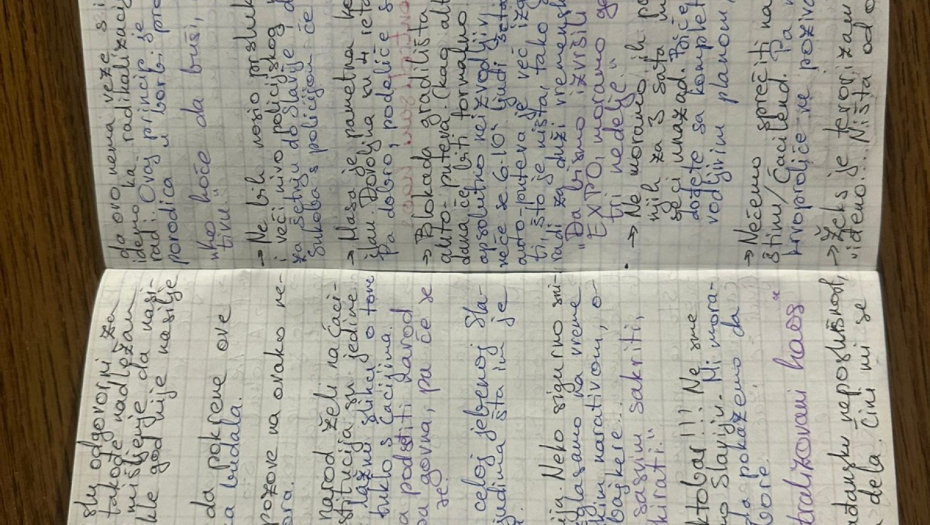 slu odgovorni za
takođe nadležan
mišljenje da nasi-
kle god nije nasilje
da pokrene ove
ca budala.
pozove na ovako ne-
ora.
narod želi na Ćaci-
stitucija su jedine
lažnu sliku o tom
sukob s Ćacijima.
a podseti narod
pa govna, pa će se
celoj jebenoj Sla-
judima šta im je
ija. Neko sigurno smi-
glasamo na vreme
kim narativom, o-
bajkere...
sasvim sakriti,
kirati."
ktobar!!! Ne sme
no Slaviju. Mi mora-
da pokažemo da
bore.
tralizovani haos"
građansku neposlušnost,
dela. Čini mi se
da ovo, nema veze s i
idemo ka radikalizaciji
radi. Ovaj princip je
porodica u borbi pro
"ko hoće da buši,
tiru"
→ Ne bih nosio prsluk
i veći nivo policijskog
za šetnju do Slavije d
sukoba s policijom će d
→ Masa je pametna ko
jan. Dovoljna su 4 reta
Pa dobro, podeliće s
→ Blokada gradilišta
auto-puteva (kao alt
dana će biti formalno
apsolutno neizvodljiv,
neće se 6-10 ljudi šeta
auto-puteva je već izg
ti, što je ništa, tako
radi za duži vremensk
"Da bismo izvršili
EXPO, moramo go
tri nedelje"
→ Ne moramo ih p
njih za 3 sata m
se i unazad. Biće
dođete sa komplet
vodljivim planom,
→ Nećemo sprečiti na
štinu/Ćacilend. Pa n
prvoproljiće se poziva
→ Žeks je terorizam
"idemo... Ništa od o